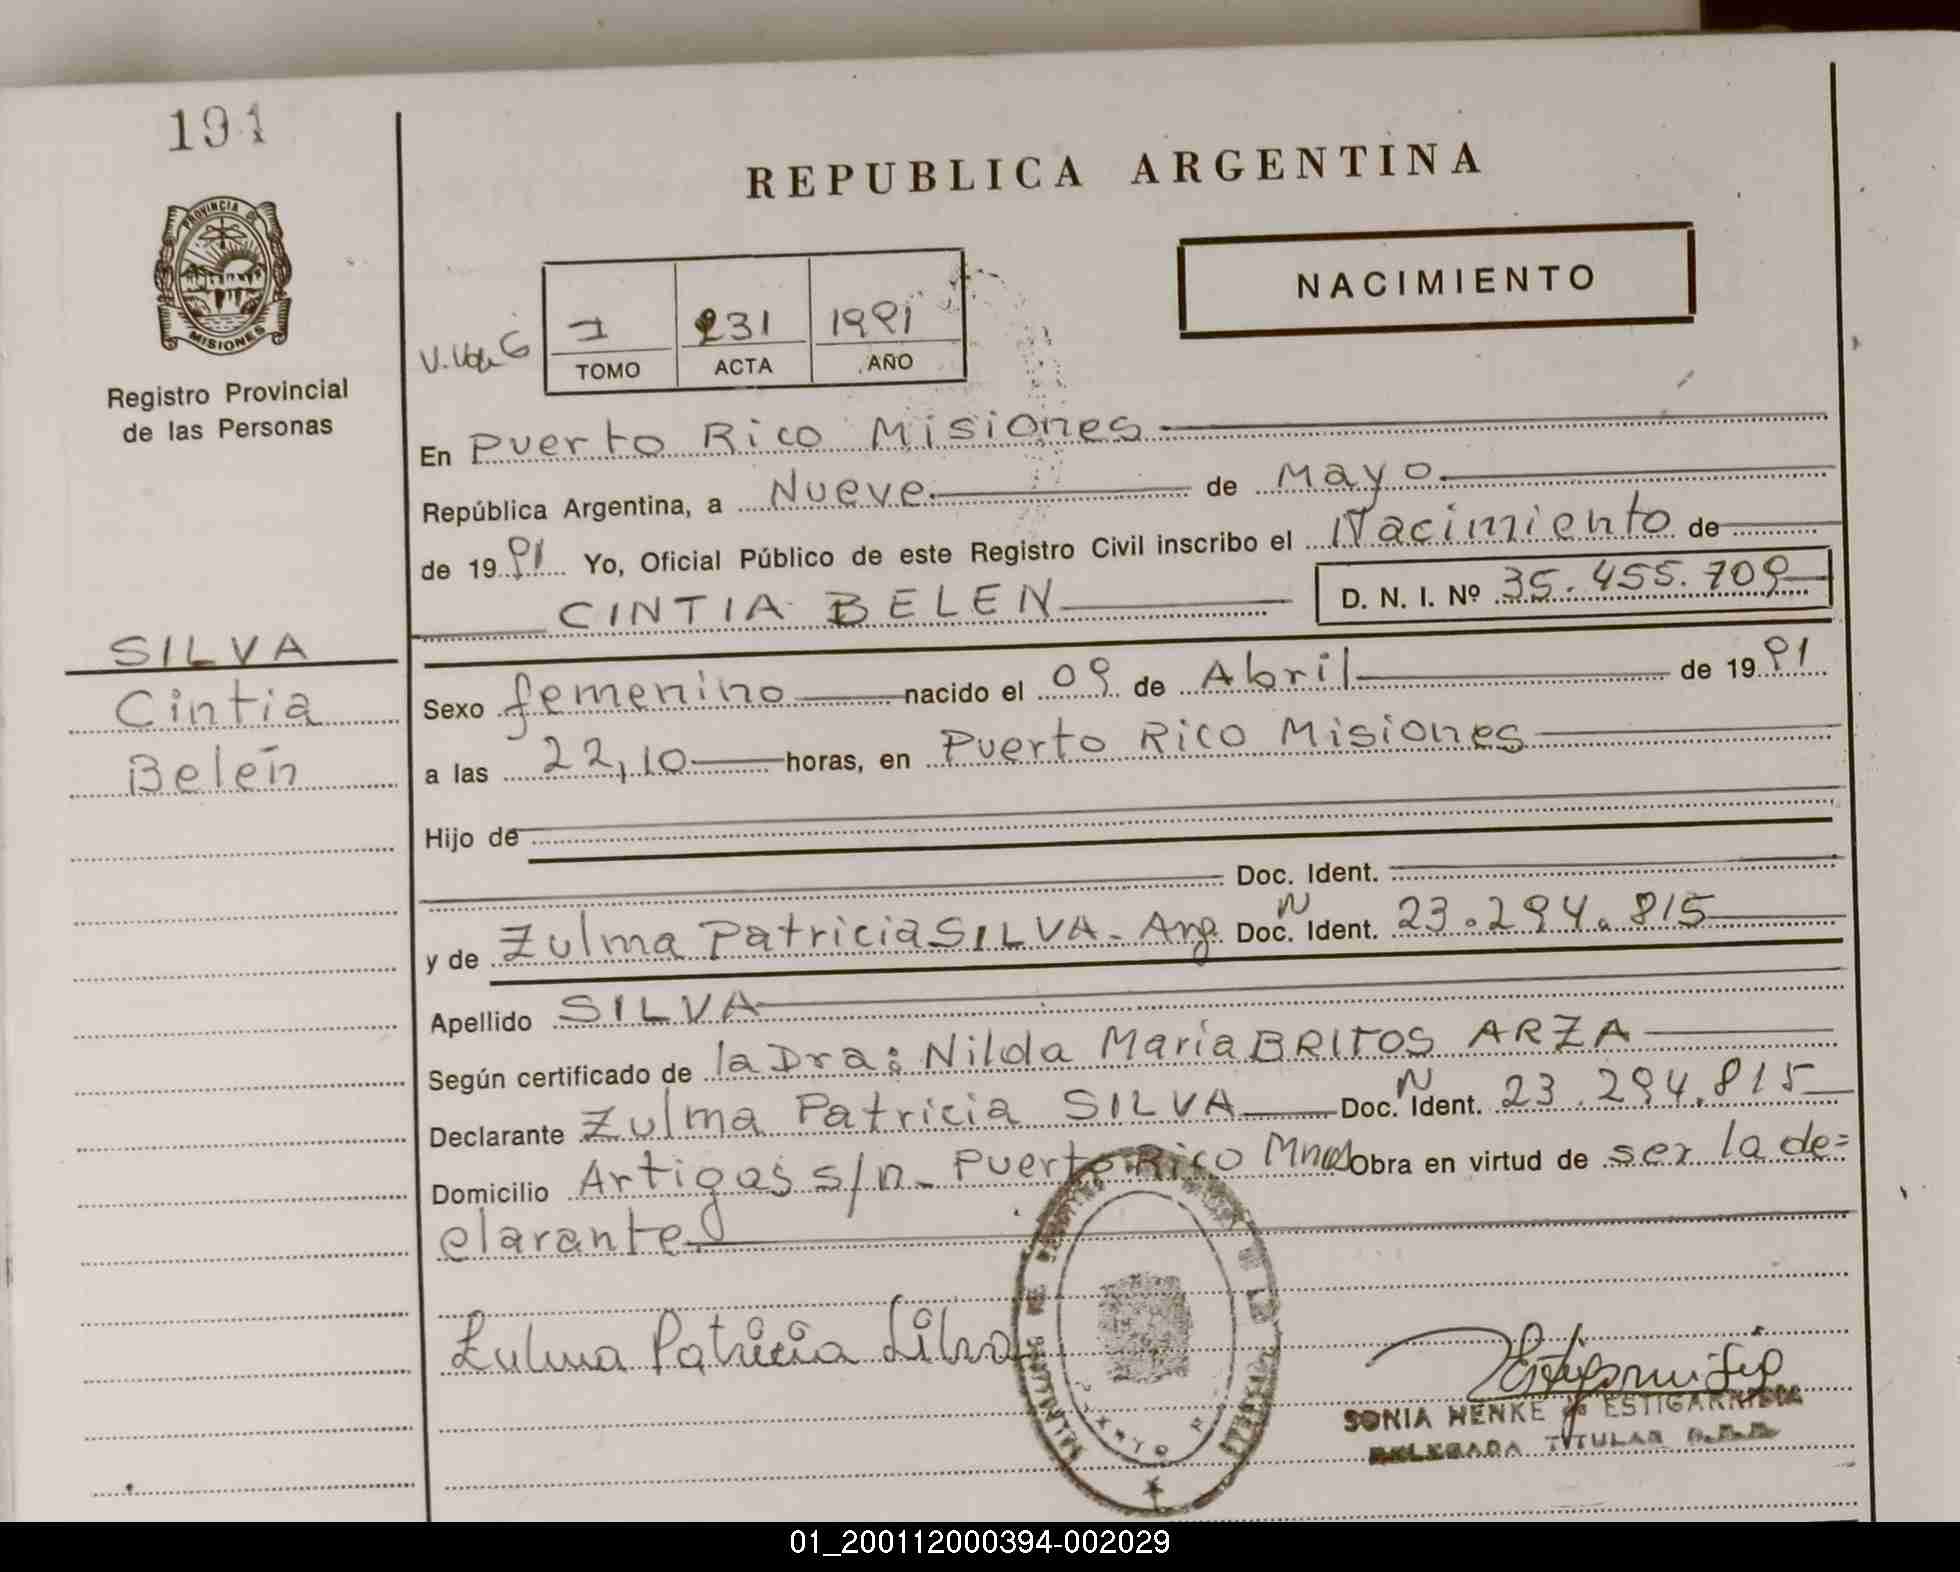 191
PROVINCIA DE
MISIONES
Registro Provincial
de las Personas
SILVA
Cintia
Belén
REPUBLICA ARGENTINA
NACIMIENTO
I 231 1991
TOMO ACTA AÑO
En Puerto Rico Misiones
República Argentina, a Nueve de Mayo
de 1991 Yo, Oficial Público de este Registro Civil inscribo el Nacimiento de
CINTIA BELEN D. N. I. Nº 35.455.709
Sexo femenino nacido el 09 de Abril de 1991
a las 22,10 horas, en Puerto Rico Misiones
Hijo de
Doc. Ident.
y de Zulma Patricia SILVA - Arg. Doc. N Ident. 23.294.815
Apellido SILVA
Según certificado de la Dra: Nilda María BRITOS ARZA
Declarante Zulma Patricia SILVA Doc. N Ident. 23.294.815
Domicilio Artigas s/n - Puerto Rico Mnes Obra en virtud de ser la de=
clarante.
Zulma Patricia Silva
SONIA HENKE de ESTIGARRIBIA
DELEGADA TITULAR
01_200112000394-002029